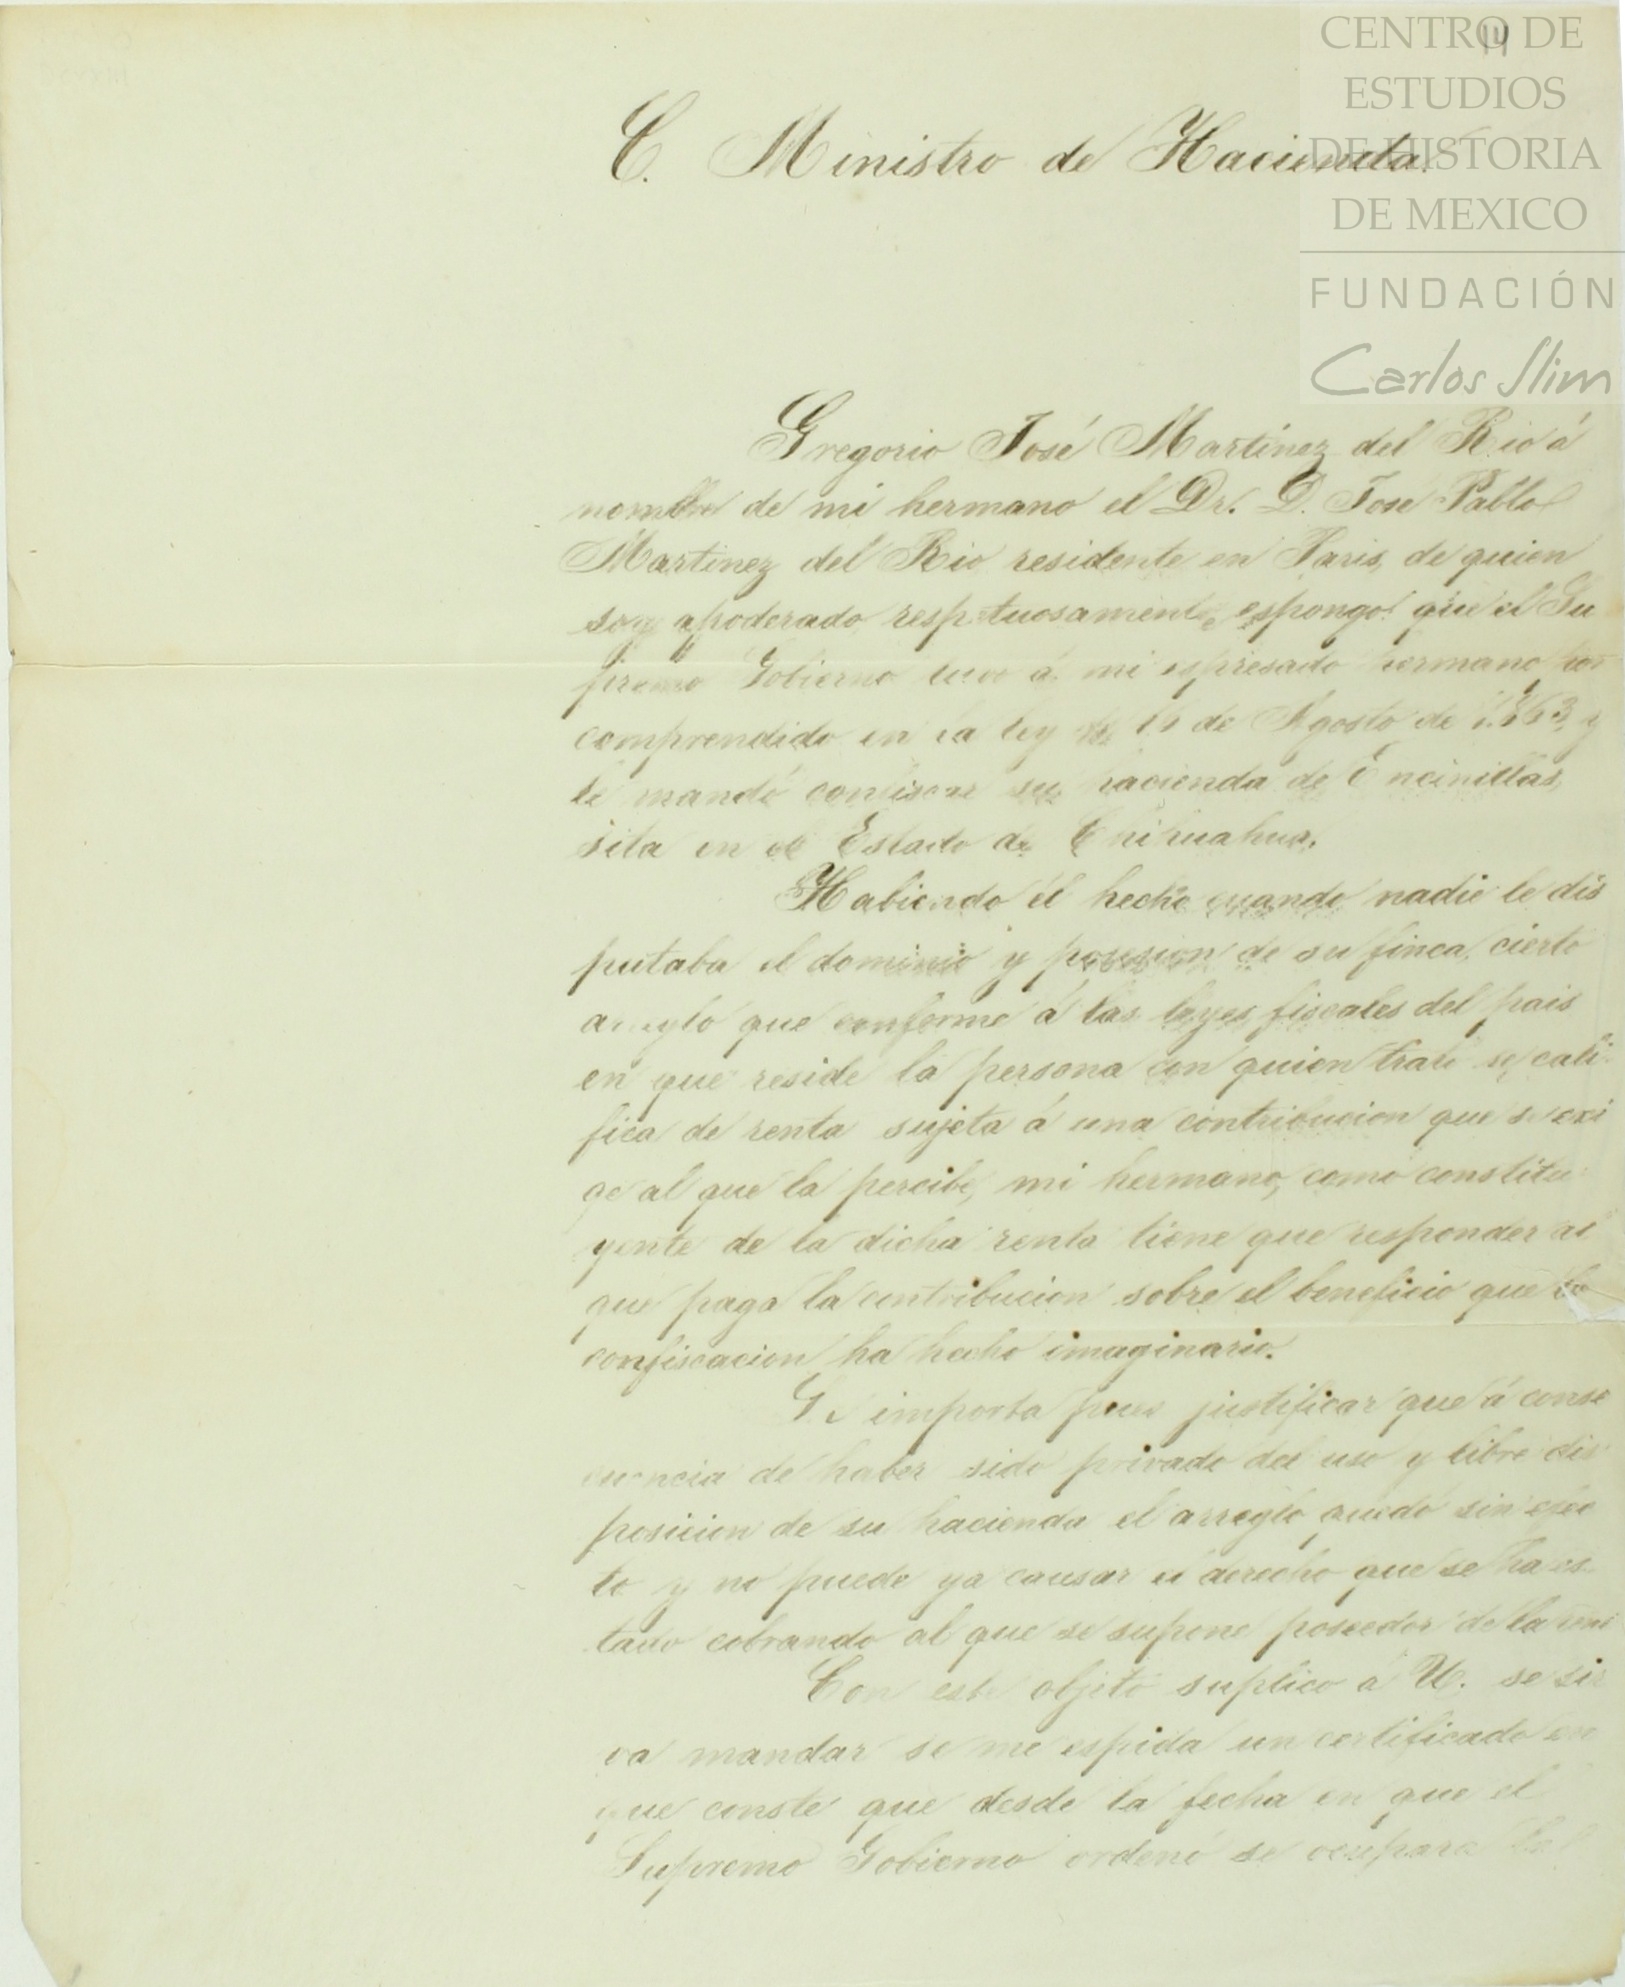 14
CENTRO DE
ESTUDIOS
DE HISTORIA
DE MEXICO
FUNDACIÓN
Carlos Slim
C. Ministro de Hacienda.
Gregorio José Martinez del Rio á
nombre de mi hermano el Dr. D. José Pablo
Martinez del Rio residente en Paris, de quien
soy apoderado respetuosamente espongo: que el Su
premo Gobierno tuvo á mi espresado hermano por
comprendido en la ley de 16 de Agosto de 1863, y
le mandó confiscar su hacienda de Encinillas,
sita en el Estado de Chihuahua.
Habiendo él hecho cuando nadie le dis
putaba el dominio y posesion de su finca, cierto
arreglo que conforme á las leyes fiscales del pais
en que reside la persona con quien trató se cali-
fica de renta sujeta á una contribucion que se exi
ge al que la percibe, mi hermano, como constitu
yente de la dicha renta tiene que responder al
que paga la contribucion sobre el beneficio que la
confiscacion ha hecho imaginario.
Le importa pues justificar que á conse
cuencia de haber sido privado del uso y libre dis
posicion de su hacienda el arreglo quedó sin efec
to y no puede ya causar el derecho que se ha es-
tado cobrando al que se supone poseedor de la
Con este objeto suplico á U. se sir
va mandar se me espida un certificado en
que conste que desde la fecha en que el
Supremo Gobierno ordenó se ocupara